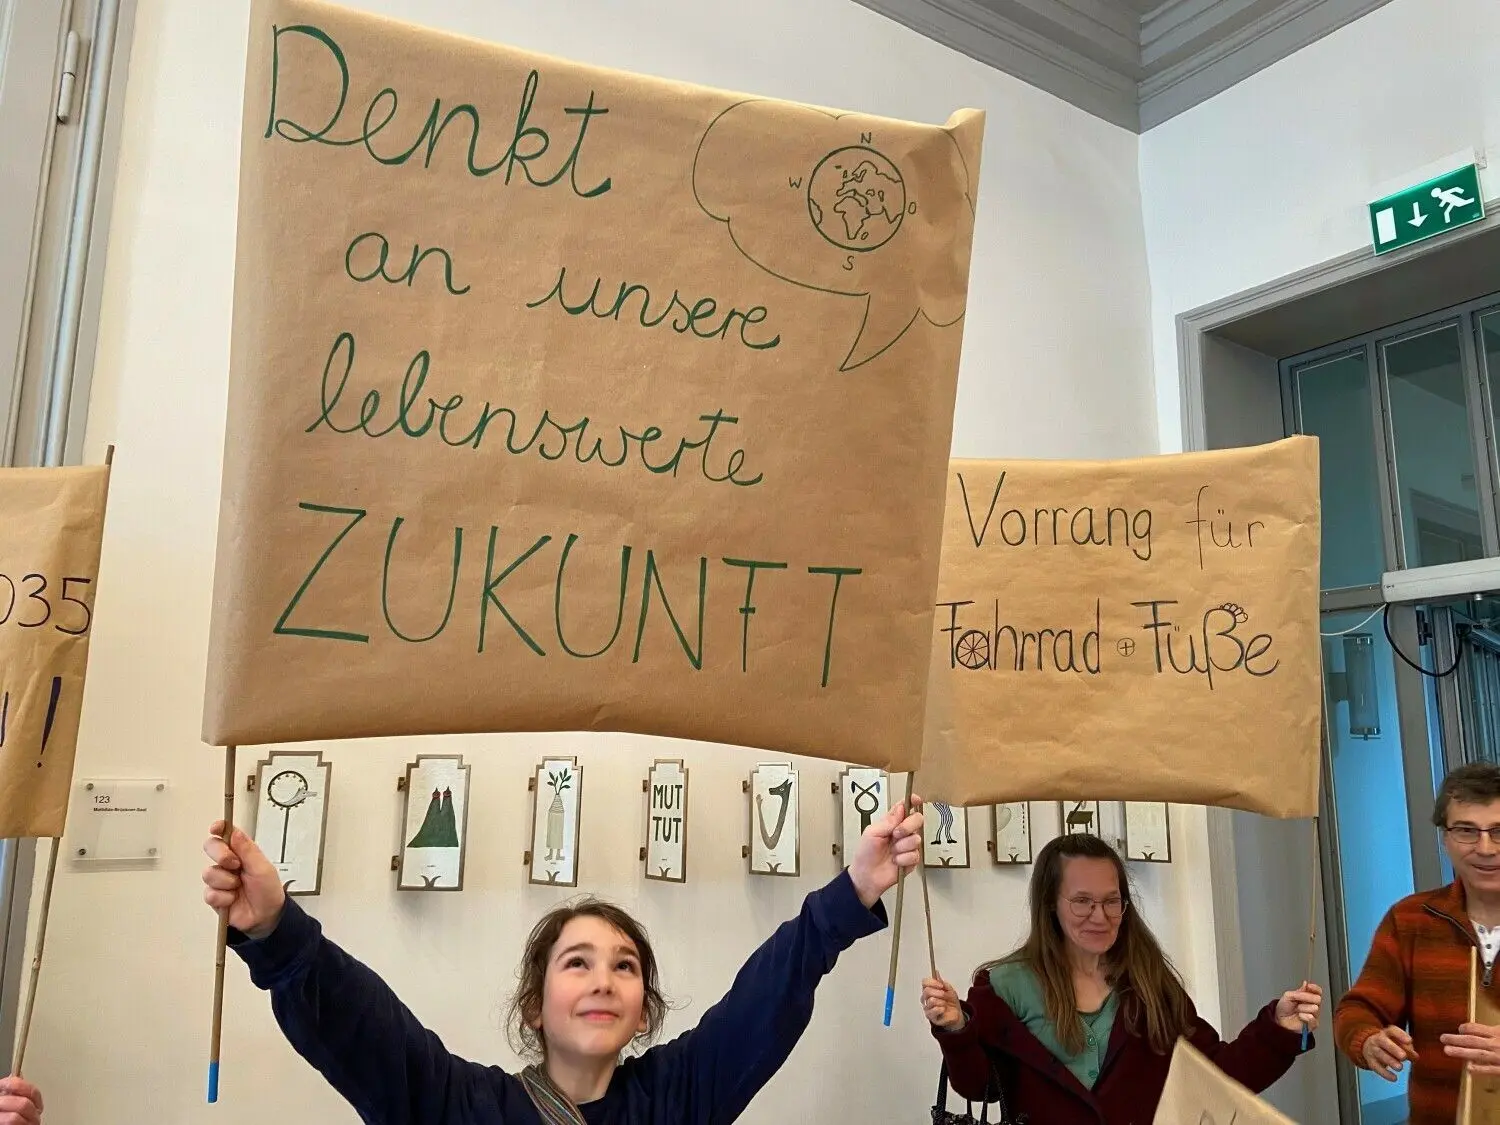 Denkt
an unsere
lebenswerte
ZUKUNFT
N
W
O
S
Vorrang für
Fahrrad + Füße
035
!
123
Matthäus-Brückner-Saal
MUT
TUT